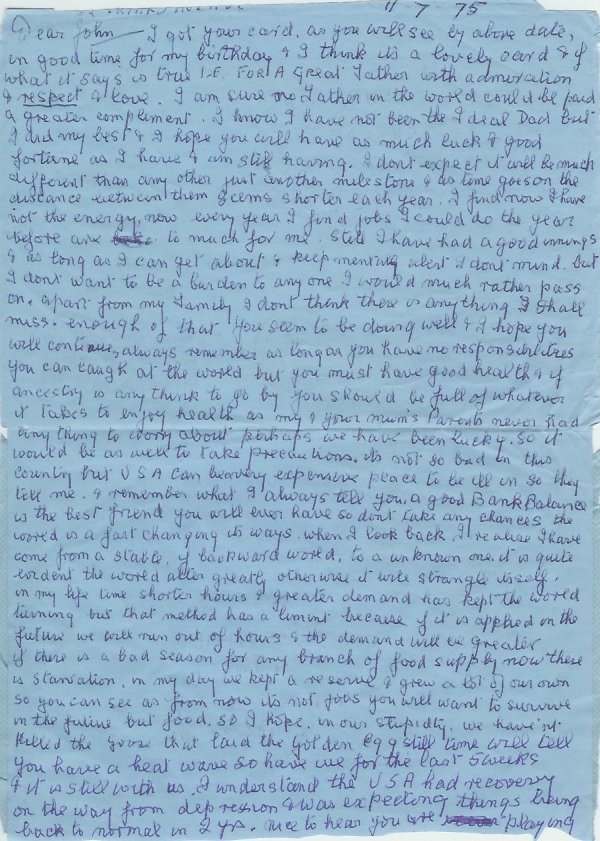 11-7-75
Dear John I got your card, as you will see by above date,
in good time for my birthday & I think its a lovely card & if
what it says is true I.E. FOR A Great Father with admiration
& respect & love. I am sure no Father in the world could be paid
a greater complement. I know I have not been the Ideal Dad but
I did my best & I hope you will have as much luck & good
fortune as I have & am still having. I dont expect it will be much
different than any other just another milestone & as time goes on the
distance between them seems shorter each year. I find now I have
not the energy, now every year I find jobs I could do the year
before are to much for me. Still I have had a good innings
& as long as I can get about & keep mentaly alert I dont mind. but
I dont want to be a burden to any one I would much rather pass
on. apart from my family I dont think there is any thing I shall
miss. enough of that you seem to be doing well & I hope you
will continue, always remember as long as you have no responsibilities
you can laugh at the world but you must have good health & if
ancestry is any think to go by you should be full of whatever
it takes to enjoy health as my & your mum's Parents never had
any thing to worry about perhaps we have been lucky. so it
would be as well to take precautions. its not so bad in this
country but USA can be very expensive place to be ill in so they
tell me. & remember what I always tell you a good Bank Balance
is the best friend you will ever have so dont take any chances the
world is a fast changing its ways. when I look back I realise I have
come from a stable, if backward world, to a unknown one. it is quite
evident the world alter greatly otherwise it will strangle itself.
in my life time shorter hours & greater demand has kept the world
turning but that method has a limit because if it is applied in the
future we will run out of hours & the demand will be greater
if there is a bad season for any branch of food supply now there
is starvation. in my day we kept a reserve & grew a lot of our own
so you can see as from now its not jobs you will want to survive
in the future but food. so I hope in our stupidity we have'nt
killed the goose that laid the Golden Egg still time will tell
You have a heat wave so have we for the last 5 weeks
& it is still with us. I understand the USA had recovery
on the way from depression & was expecting things being
back to normal in 2 yrs. nice to hear you are playing